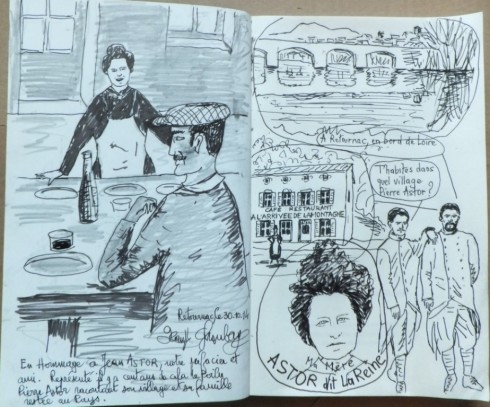 Retournac le 30.10.14
En Hommage à Jean ASTOR, notre
ami. Représenté il y a cent ans de cela le Poilu
Pierre Astor racontait son village et sa famille
restée au Pays.
A Retournac, en bord de Loire
T'habites dans
quel village
Pierre Astor ?
CAFE RESTAURANT
A L'ARRIVEE DE LA MONTAGNE
Mère
ASTOR dit La Reine